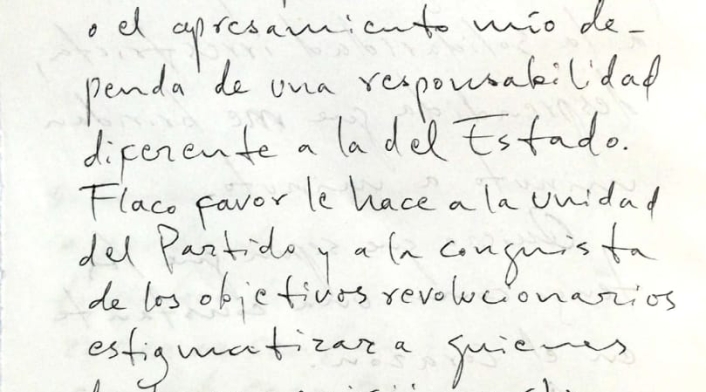 o el apresamiento mío de-
penda de una responsabilidad
diferente a la del Estado.
Flaco favor le hace a la unidad
del Partido y a la conquista
de los objetivos revolucionarios
estigmatizar a quienes